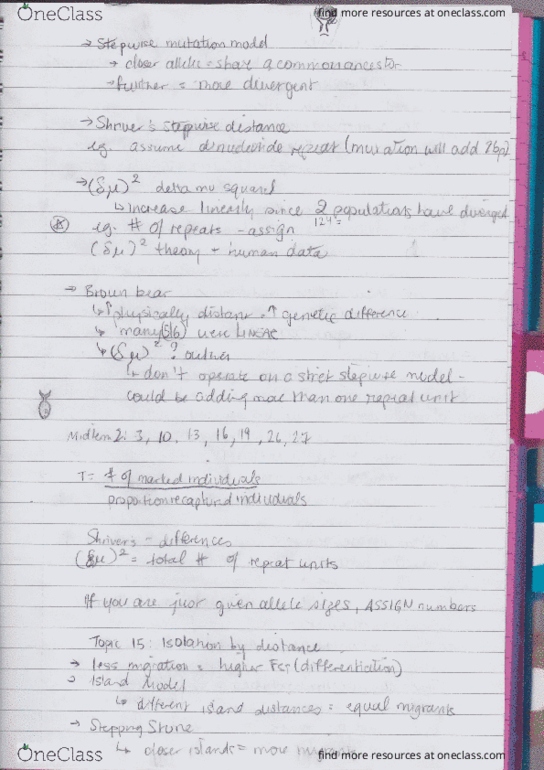 OneClass
find more resources at oneclass.com
→ Stepwise mutation model
→ closer allele = share a common ancestor
→ further = more divergent
→ Shriver's stepwise distance
eg. assume dinucleotide repeat (mutation will add 2bp)
→ (δμ)² delta mu squared
↳ increase linearly since 2 populations have diverged
eg. # of repeats - assign
(δμ)² theory + human data
→ Brown bear
↳ ↑ physically distant = ↑ genetic difference
↳ many (5/6) were LINEAR
↳ (δμ)² ? outlier
↳ don't operate on a strict stepwise model -
could be adding more than one repeat unit
Midterm 2: 3, 10, 13, 16, 19, 26, 27
T = # of marked individuals
proportion recaptured individuals
Shrivers - differences
(δμ)² = total # of repeat units
If you are just given allele sizes, ASSIGN numbers
Topic 15: Isolation by distance
→ less migration = higher FST (differentiation)
→ Island Model
↳ different island distances = equal migrants
→ Stepping Stone
↳ closer islands = more migrants
OneClass
find more resources at oneclass.com